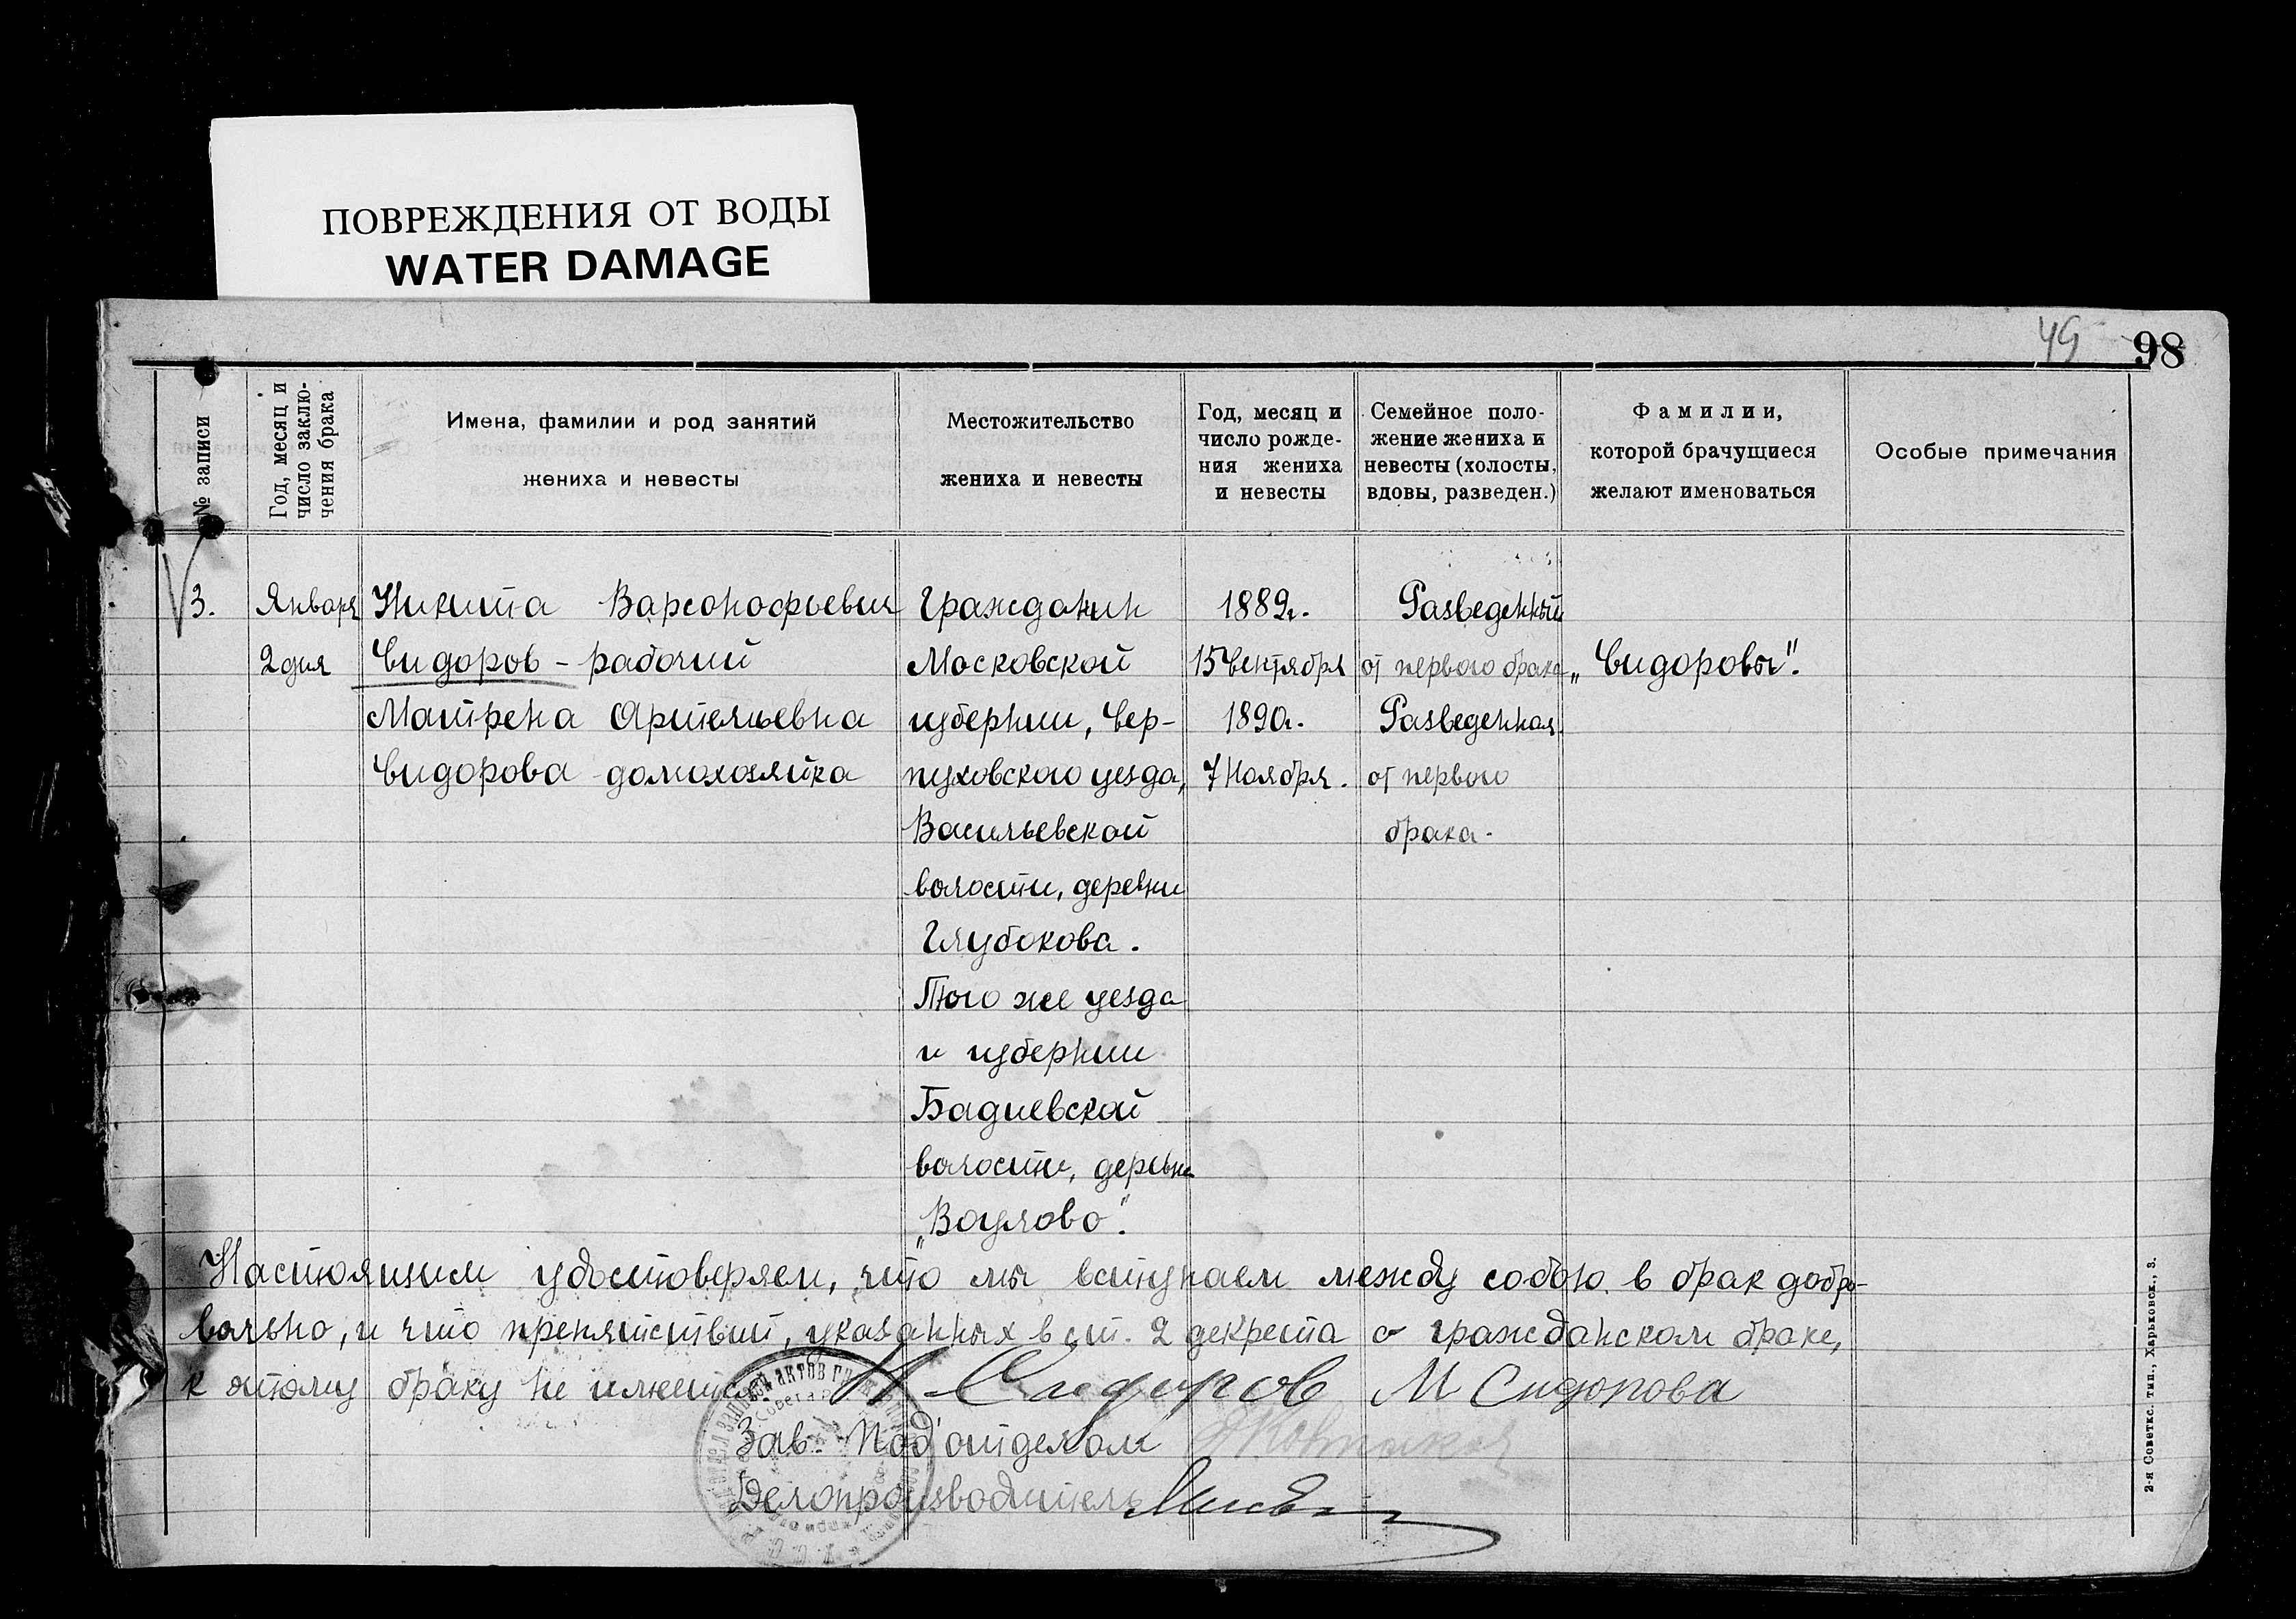 ПОВРЕЖДЕНИЯ ОТ ВОДЫ
WATER DAMAGE
49
98
№ записи
Год, месяц и
число заклю-
чения брака
Имена, фамилии и род занятий
жениха и невесты
Местожительство
жениха и невесты
Год, месяц и
число рожде-
ния жениха
и невесты
Семейное поло-
жение жениха и
невесты (холосты,
вдовы, разведен.)
Фамилии,
которой брачущиеся
желают именоваться
Особые примечания
3.
Января
2 дня
Никита Варсонофьевич
Сидоров - рабочий
Матрена Артемьевна
Сидорова - домохозяйка
Гражданин
Московской
губернии, Сер-
пуховского уезда,
Васильевской
волости, деревни
Глубокова.
Того же уезда
и губернии
Бадиевской
волости, деревни
„Ваулово".
1889г.
15 Сентября
1890г.
7 Ноября.
Разведенный
от первого брака
Разведенная
от первого
брака.
„Сидоровы".
Настоящим удостоверяем, что мы вступаем между собою в брак добро-
вольно, и что препятствий, указанных в ст. 2 декрета о гражданском браке,
к этому браку не имеется. Н Сидоров М Сидорова
Зав. Под'отделом
Делопроизводитель
2-я Советск. тип., Харьковск., 3.